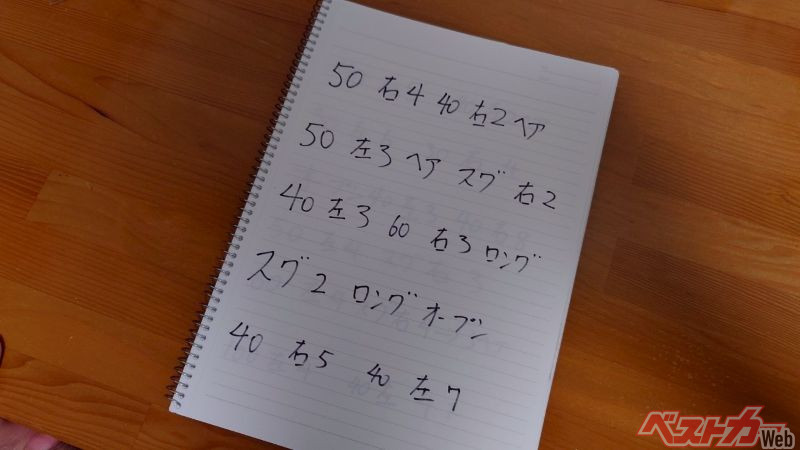 50 右4 40 右2 ヘア
50 左3 ヘア スグ 右2
40 左3 60 右3 ロング
スグ2 ロング オープン
40 右5 40 左7
ベストカーWeb